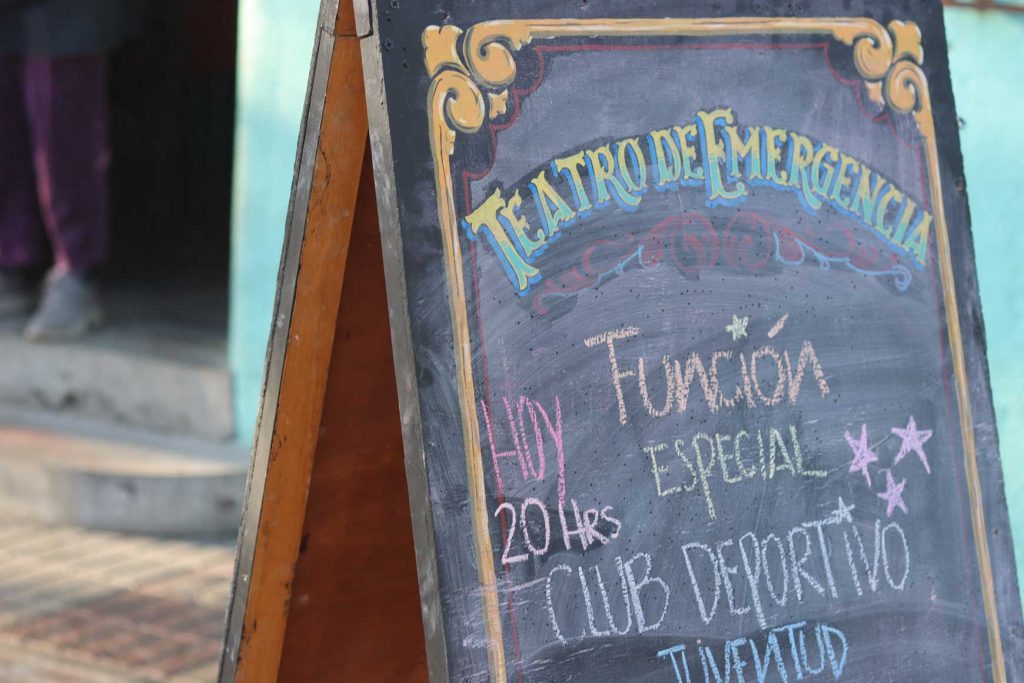 Teatro de Emergencia
Función
HOY
ESPECIAL
20 Hrs
CLUB DEPORTIVO
JUVENTUD